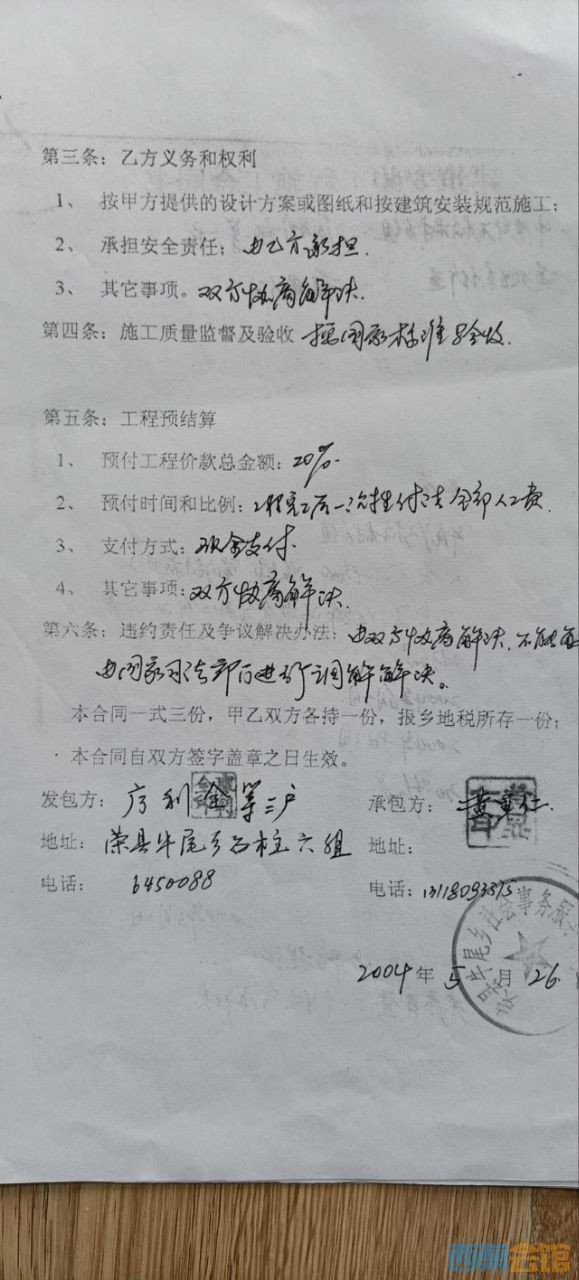 第三条：乙方义务和权利
1、 按甲方提供的设计方案或图纸和按建筑安装规范施工；
2、 承担安全责任；由乙方承担
3、 其它事项。双方协商解决.
第四条：施工质量监督及验收 按国家标准验收.
第五条：工程预结算
1、 预付工程价款总金额：20%.
2、 预付时间和比例：工程完工后一次性付清全部工资.
3、 支付方式：现金支付.
4、 其它事项：双方协商解决.
第六条：违约责任及争议解决办法：由双方协商解决.不能
由国家司法部门进行调解解决。
本合同一式三份，甲乙双方各持一份，报乡地税所存一份；
本合同自双方签字盖章之日生效。
发包方： 利金等三户 承包方： 黄
地址： 荣县牛尾乡石柱六组 地址：
电话： 6450088 电话：
牛尾乡社会事务服
2004年5月26
西菜会馆